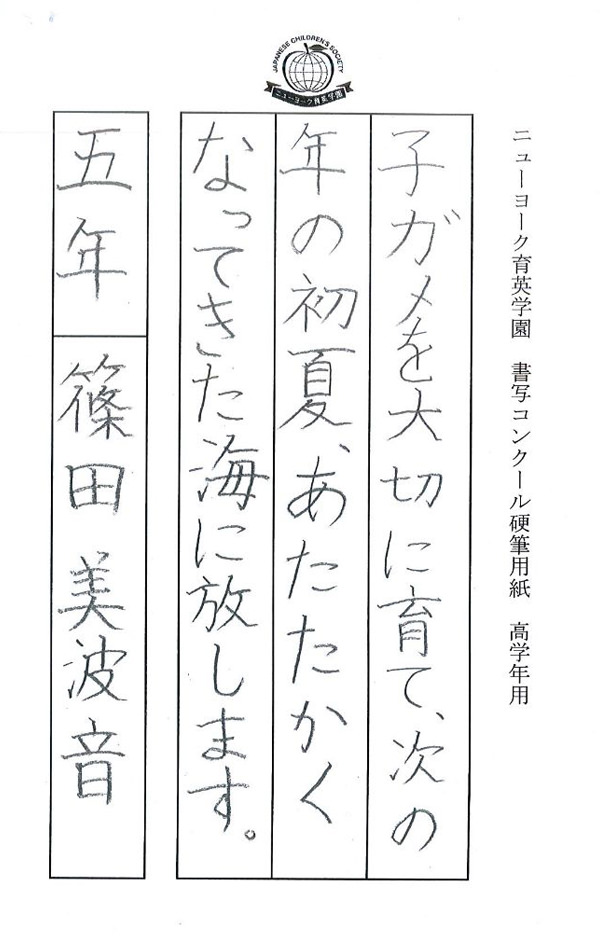 JAPANESE CHILDREN'S SOCIETY
ニューヨーク育英学園
ニューヨーク育英学園　書写コンクール硬筆用紙　高学年用
子ガメを大切に育て、次の
年の初夏、あたたかく
なってきた海に放します。
五年　篠田　美波音